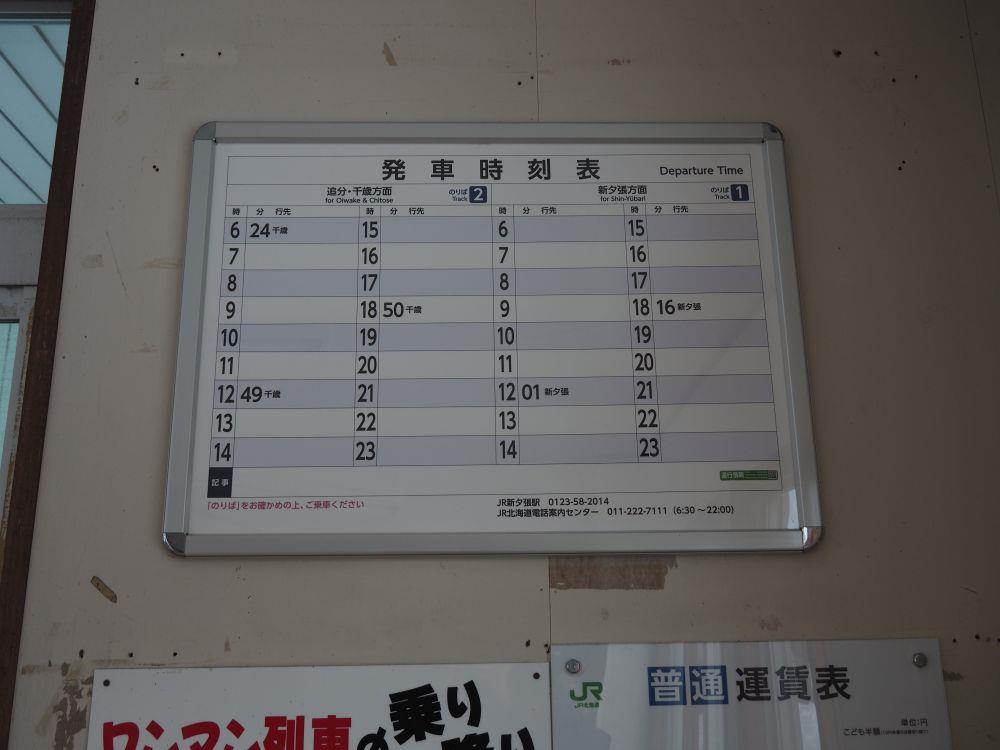 発車時刻表 Departure Time
追分・千歳方面 のりば 2
for Oiwake & Chitose Track
新夕張方面 のりば 1
for Shin-Yūbari Track
時 分 行先 時 分 行先 時 分 行先 時 分 行先
6 24 千歳 15 6 15
7 16 7 16
8 17 8 17
9 18 50 千歳 9 18 16 新夕張
10 19 10 19
11 20 11 20
12 49 千歳 21 12 01 新夕張 21
13 22 13 22
14 23 14 23
記事 運行情報
「のりば」をお確かめの上、ご乗車ください
JR新夕張駅 0123-58-2014
JR北海道電話案内センター 011-222-7111 (6:30～22:00)
ワンマン列車の乗り
降り
JR
JR北海道
普通運賃表
単位:円
こども半額